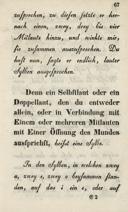 67
zusprechen, zu diesem setzte er her-
nach einen, zwey, drey bis vier
Mitlaute hinzu, und winkte mir,
sie zusammen auszusprechen. Du
hast nun, sagte er endlich, lauter
Sylben ausgesprochen.
Denn ein Selbstlaut oder ein
Doppellaut, den du entweder
allein, oder in Verbindung mit
Einem oder mehreren Mitlauten
mit Einer Öffnung des Mundes
aussprichst, heißt eine Sylbe.
In den Sylben, in welchen zwey
a, zwey e, zwey o beysammen stan-
den, auf das i ein e, oder auf
E 2